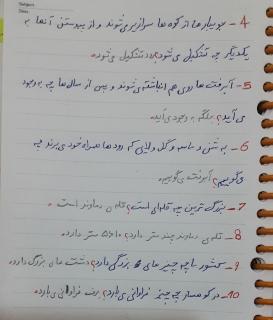 4- جویبارها از کوه‌ها سرازیر می‌شوند و از پیوستن آنها به
یکدیگر چه تشکیل می‌شود؟ رود تشکیل می‌شود.
5- آبرفت‌ها روی هم انباشته می‌شوند و پس از سال‌ها چه به وجود
می‌آید؟ جلگه به وجود می‌آید.
6- به شن و ماسه و گل و لایی که رودها همراه خود می‌برند چه
می‌گوییم؟ آبرفت می‌گوییم.
7- بزرگ‌ترین چه قله‌ای است؟ قله‌ی دماوند است.
8- قله‌ی دماوند چند متر دارد؟ 5610 متر دارد.
9- کشور ما چه چیز های بزرگی دارد؟ دشت های بزرگ دارد.
10- در کوهسار چه چیز فراوانی می‌بارد؟ برف فراوانی می‌بارد.